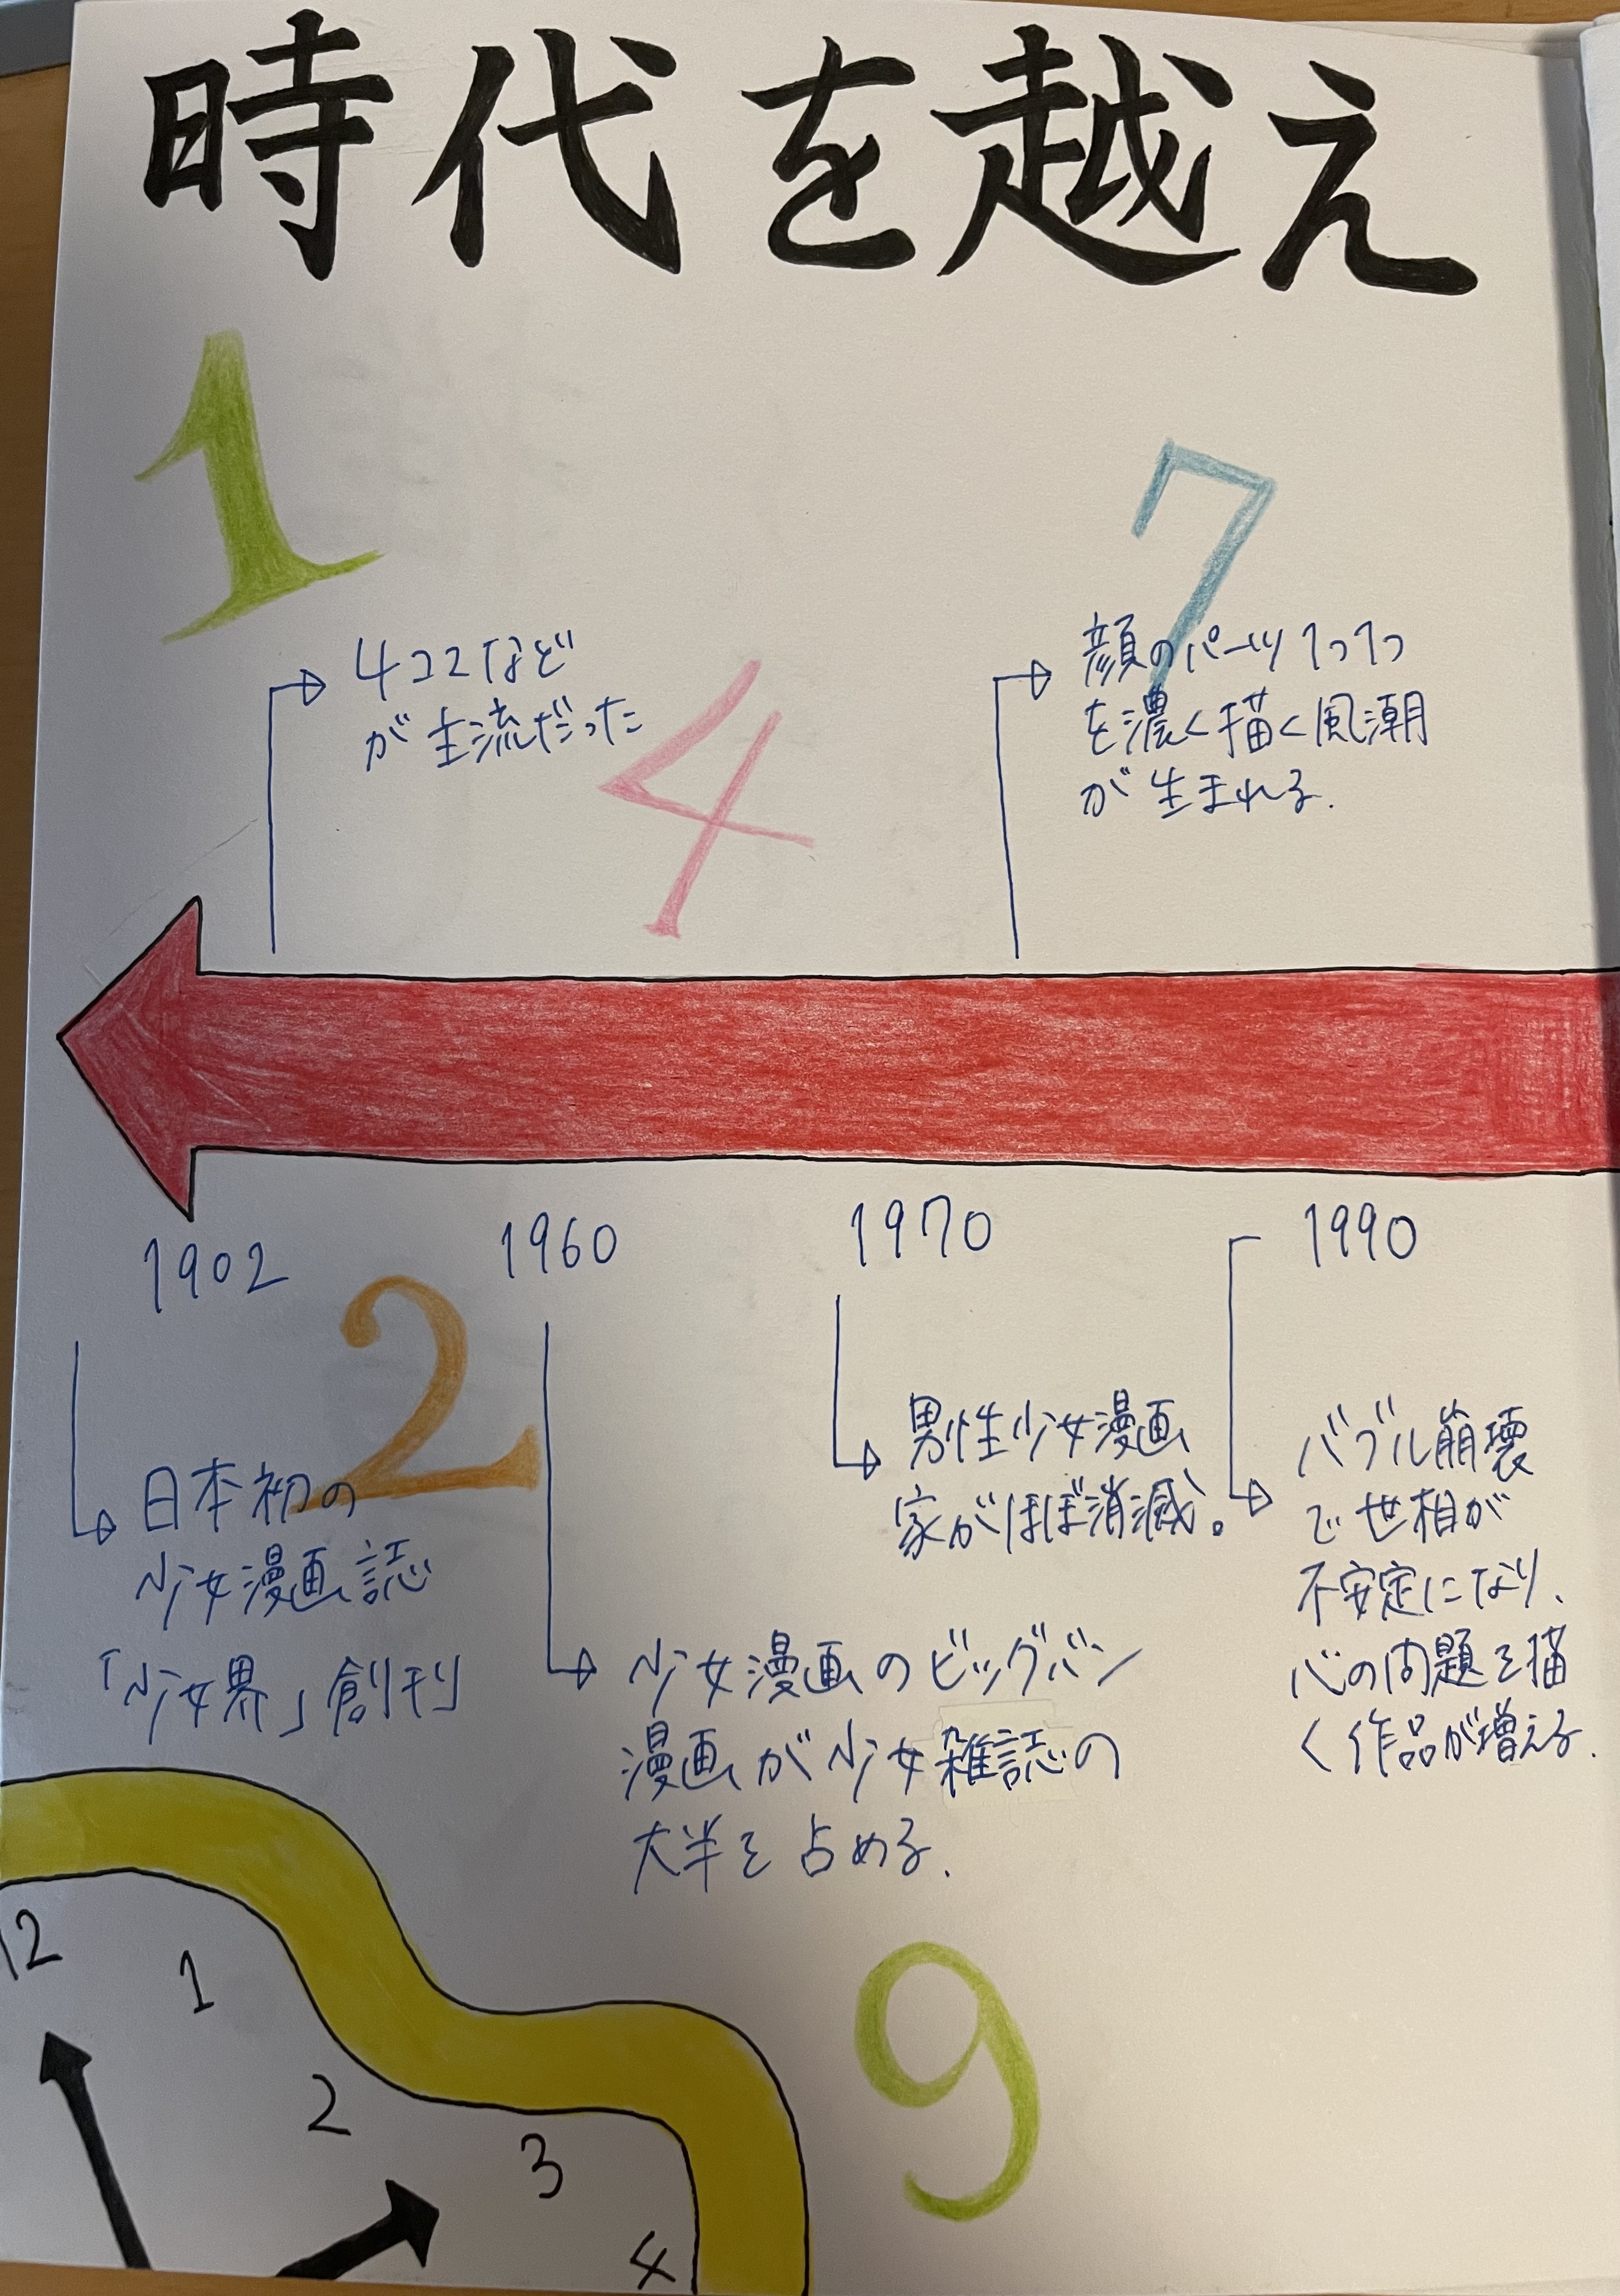 時代を越え
1
7
4コマなど
が主流だった
4
顔のパーツ1つ1つ
を濃く描く風潮
が生まれる.
1902
1960
1970
1990
2
日本初の
少女漫画誌
「少女界」創刊
少女漫画のビッグバン
漫画が少女雑誌の
大半を占める.
男性少女漫画
家がほぼ消滅。
バブル崩壊
で世相が
不安定になり、
心の問題を描
く作品が増える.
9
12
1
2
3
4